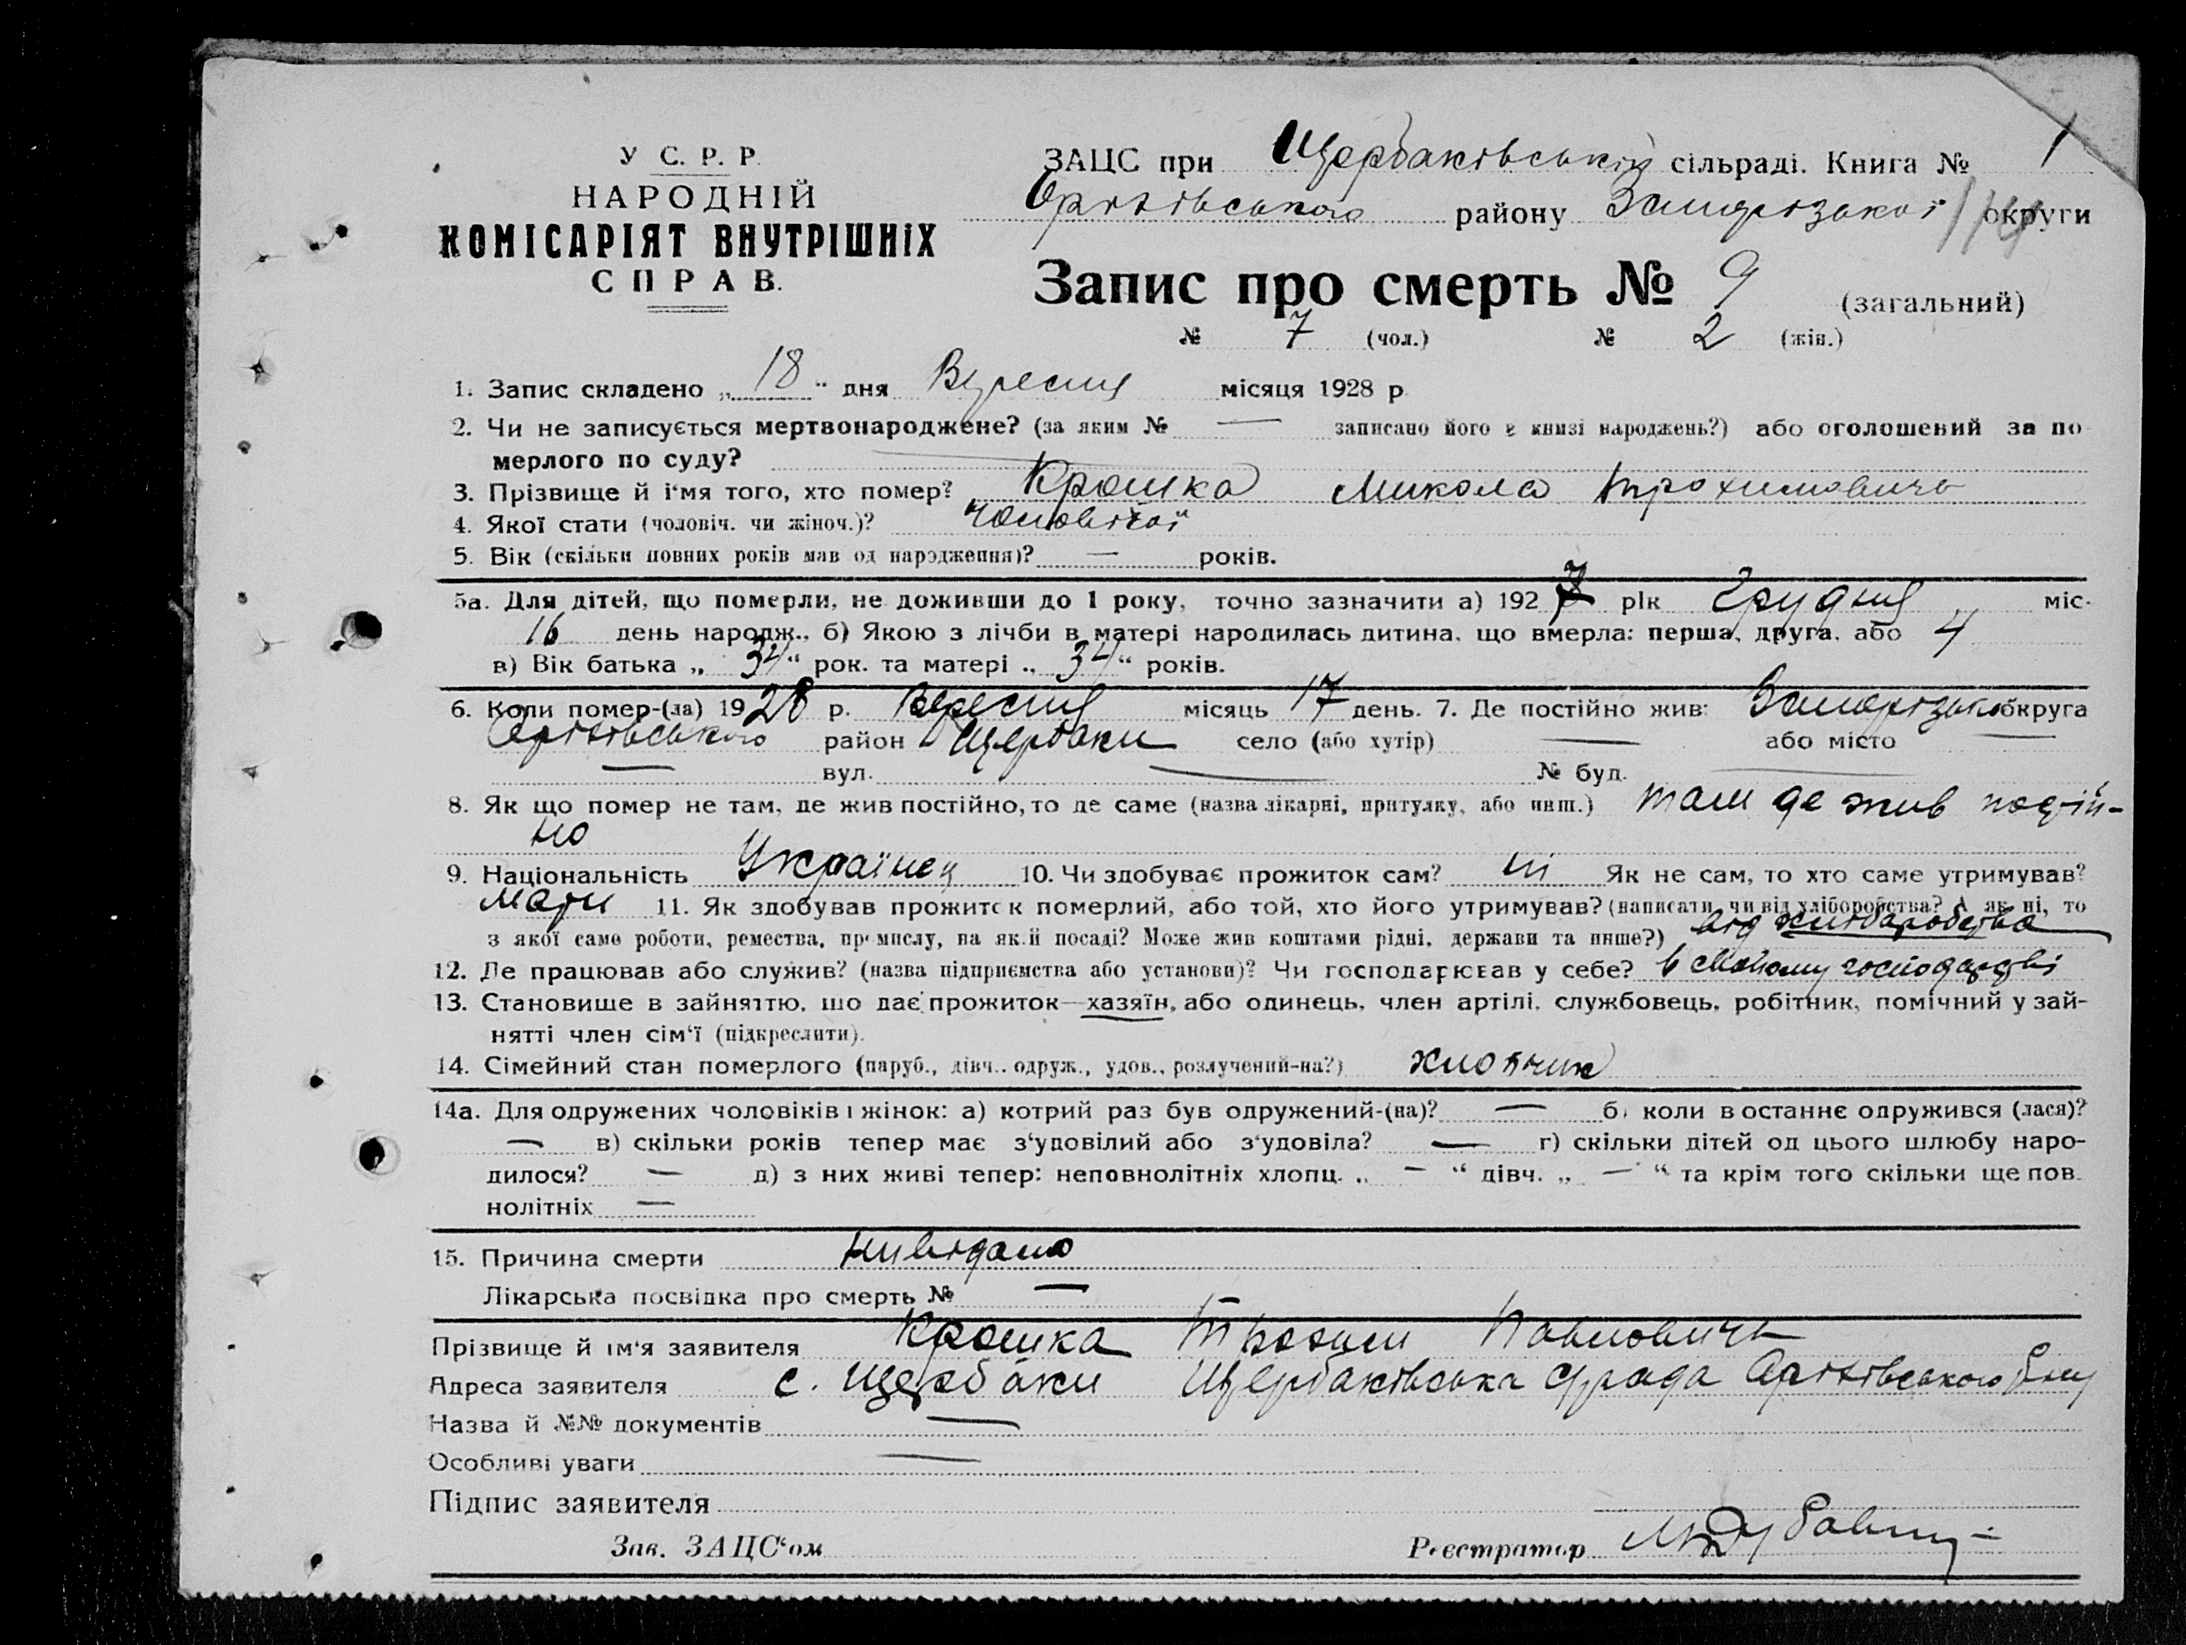 У С. Р. Р.
НАРОДНІЙ
КОМІСАРІЯТ ВНУТРІШНІХ
СПРАВ.
ЗАЦС при Щербаківській сільраді. Книга № 1
Оріхівського району Запорізької округи
Запис про смерть № 9 (загальний)
№ 7 (чол.) № 2 (жін.)
1. Запис складено „ 18 “ дня Вересня місяця 1928 р.
2. Чи не записується мертвонароджене? (за яким № — записано його в книзі народжень?) або оголошений за по
мерлого по суду? —
3. Прізвище й і'мя того, хто помер? Крошка Микола Трохимовичь
4. Якої стати (чоловіч. чи жіноч.)? чоловічої
5. Вік (скільки повних років мав од народження)? — років.
5а. Для дітей, що померли, не доживши до 1 року, точно зазначити а) 1927 рік Грудня міс.
16 день народж., б) Якою з лічби в матері народилась дитина, що вмерла: перша, друга, або 4
в) Вік батька „ 34 “ рок. та матері „ 34 “ років.
6. Коли помер-(ла) 1928 р. Вересня місяць 17 день. 7. Де постійно жив: Запорізька округа
Оріхівського район Щербаки село (або хутір) — або місто —
— вул. — № буд. —
8. Як що помер не там, де жив постійно, то де саме (назва лікарні, притулку, або инш.) там де жив постій-
но
9. Національність Українец 10. Чи здобуває прожиток сам? ні Як не сам, то хто саме утримував?
Мати 11. Як здобував прожиток померлий, або той, хто його утримував? (написати, чи від хліборобства? А як ні, то
з якої саме роботи, ремества, промислу, на якій посаді? Може жив коштами рідні, держави та инше?) від хліборобства
12. Де працював або служив? (назва підприємства або установи)? Чи господарював у себе? в своїому господарстві
13. Становище в зайняттю, що дає прожиток—хазяїн, або одинець, член артілі, службовець, робітник, помічний у зай-
нятті член сім'ї (підкреслити).
14. Сімейний стан померлого (паруб., дівч., одруж., удов., розлучений-на?) хлопчик
14а. Для одружених чоловіків і жінок: а) котрий раз був одружений-(на)? — б) коли в останнє одружився (лася)?
— в) скільки років тепер має з'удовілий або з'удовіла? — г) скільки дітей од цього шлюбу наро-
дилося? — д) з них живі тепер: неповнолітніх хлопц. „ — “ дівч. „ — “ та крім того скільки ще пов
нолітніх —
15. Причина смерти Нивідомо
Лікарська посвідка про смерть № —
Прізвище й ім'я заявителя Крошка Трохим Павловичь
Адреса заявителя с. Щербаки Щербаківська с/рада Оріхівського р-ну
Назва й №№ документів —
Особливі уваги —
Підпис заявителя
Зав. ЗАЦС'ом Реєстратор